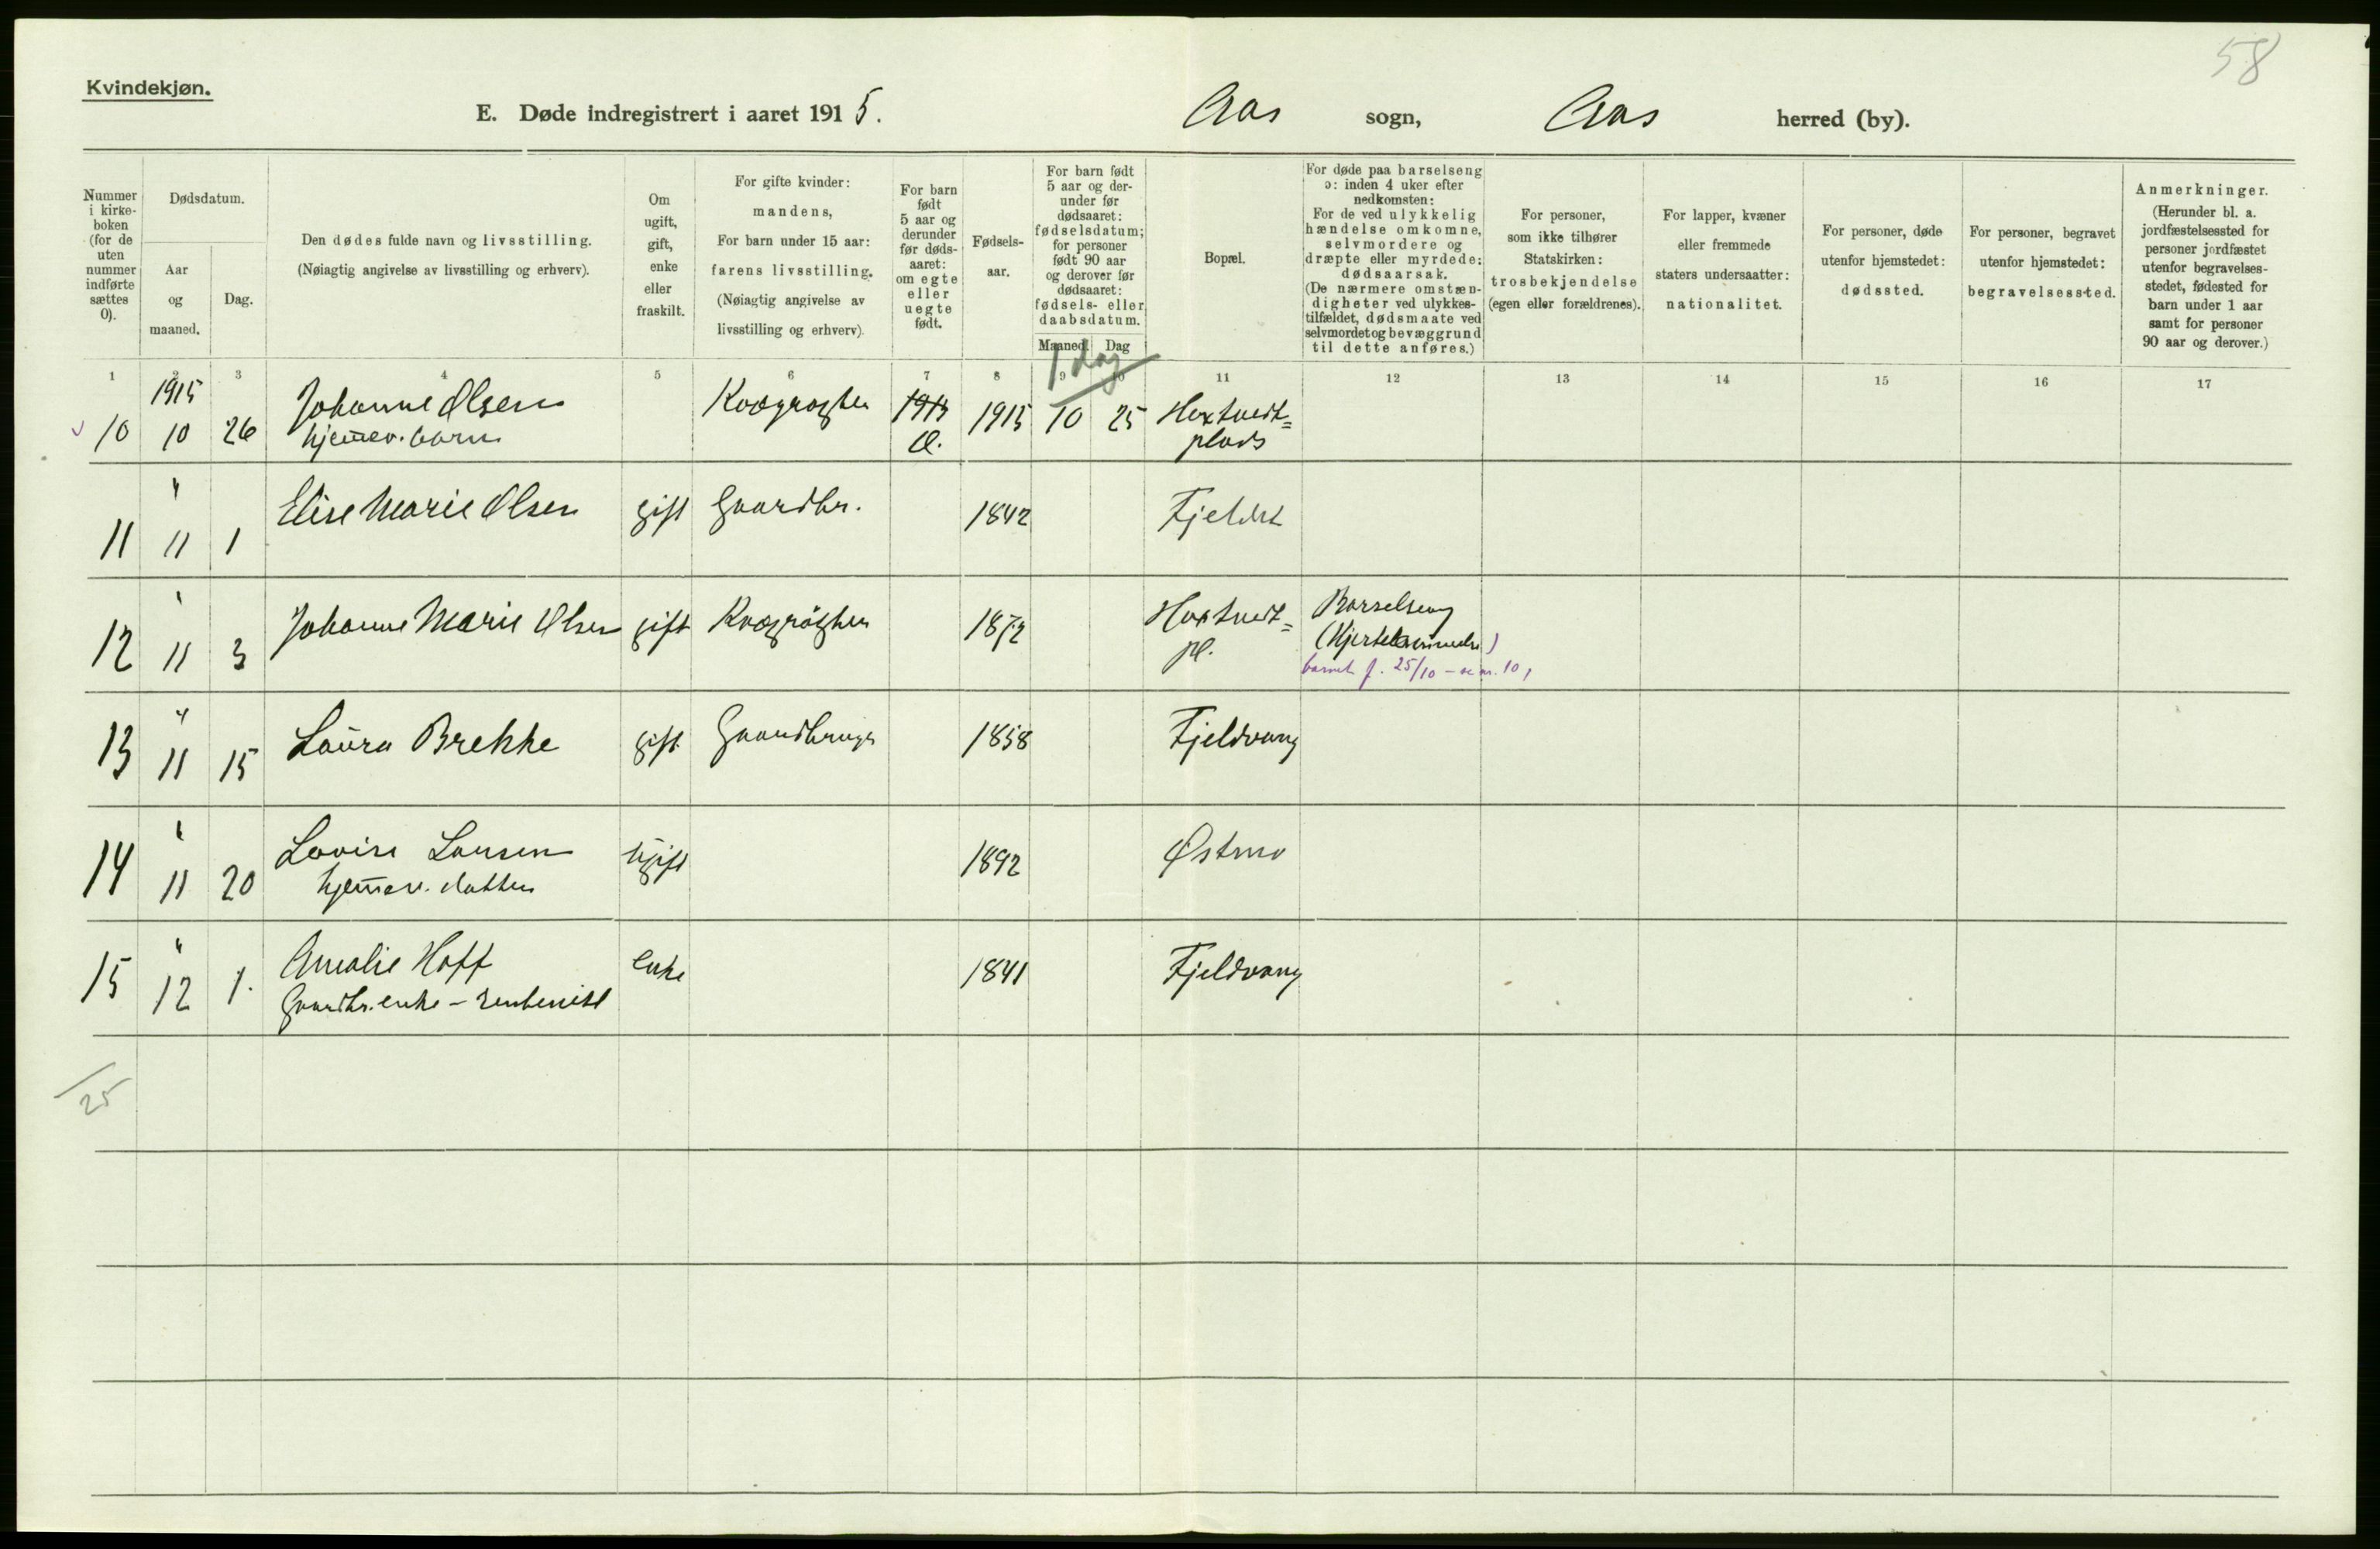 58
Kvindekjøn.
E. Døde indregistrert i aaret 1915. Aas sogn, Aas herred (by).
Nummer i kirke-boken (for de uten nummer indførte sættes 0).
Dødsdatum.
Aar og maaned.
Dag.
Den dødes fulde navn og livsstilling.
(Nøiagtig angivelse av livsstilling og erhverv).
Om ugift, gift, enke eller fraskilt.
For gifte kvinder: mandens,
For barn under 15 aar: farens livsstilling.
(Nøiagtig angivelse av livsstilling og erhverv).
For barn født 5 aar og derunder før døds-aaret: om egte eller uegte født.
Fødsels-aar.
For barn født 5 aar og der-under før dødsaaret: fødselsdatum; for personer født 90 aar og derover før dødsaaret: fødsels- eller daabsdatum.
Maaned. Dag
Bopæl.
For døde paa barselseng ɔ: inden 4 uker efter nedkomsten:
For de ved ulykkelig hændelse omkomne, selvmordere og dræpte eller myrdede: dødsaarsak.
(De nærmere omstæn-digheter ved ulykkes-tilfældet, dødsmaate ved selvmordet og bevæggrund til dette anføres.)
For personer, som ikke tilhører Statskirken: trosbekjendelse (egen eller forældrenes).
For lapper, kvæner eller fremmede staters undersaatter: nationalitet.
For personer, døde utenfor hjemstedet: dødssted.
For personer, begravet utenfor hjemstedet: begravelsessted.
Anmerkninger.
(Herunder bl. a. jordfæstelsessted for personer jordfæstet utenfor begravelses-stedet, fødested for barn under 1 aar samt for personer 90 aar og derover.)
1 2 3 4 5 6 7 8 9 10 11 12 13 14 15 16 17
1 dag
10 1915 10 26 Johanne Olsen Kvægrøgter 1915 1915 10 25 Hoxtvedt=
hjemmev. barn Æ. plads
11 " 11 1 Elise Marie Olsen gift Gaardbr. 1842
12 " 11 3 Johanne Marie Olsen gift Kvægrøgter 1872 Hoxtvedt= Barselseng
pl.
barnet f. 25/10 – se nr. 10,
13 " 11 15 Laura Brekke gift Gaardbruger 1858 Fjeldvang
14 " 11 20 Lovise Larsen ugift 1892 Østmo
hjemmev. datter
15 " 12 1. Amalie Hoff enke 1841 Fjeldvang
Gaardbr. enke – rentenist
25